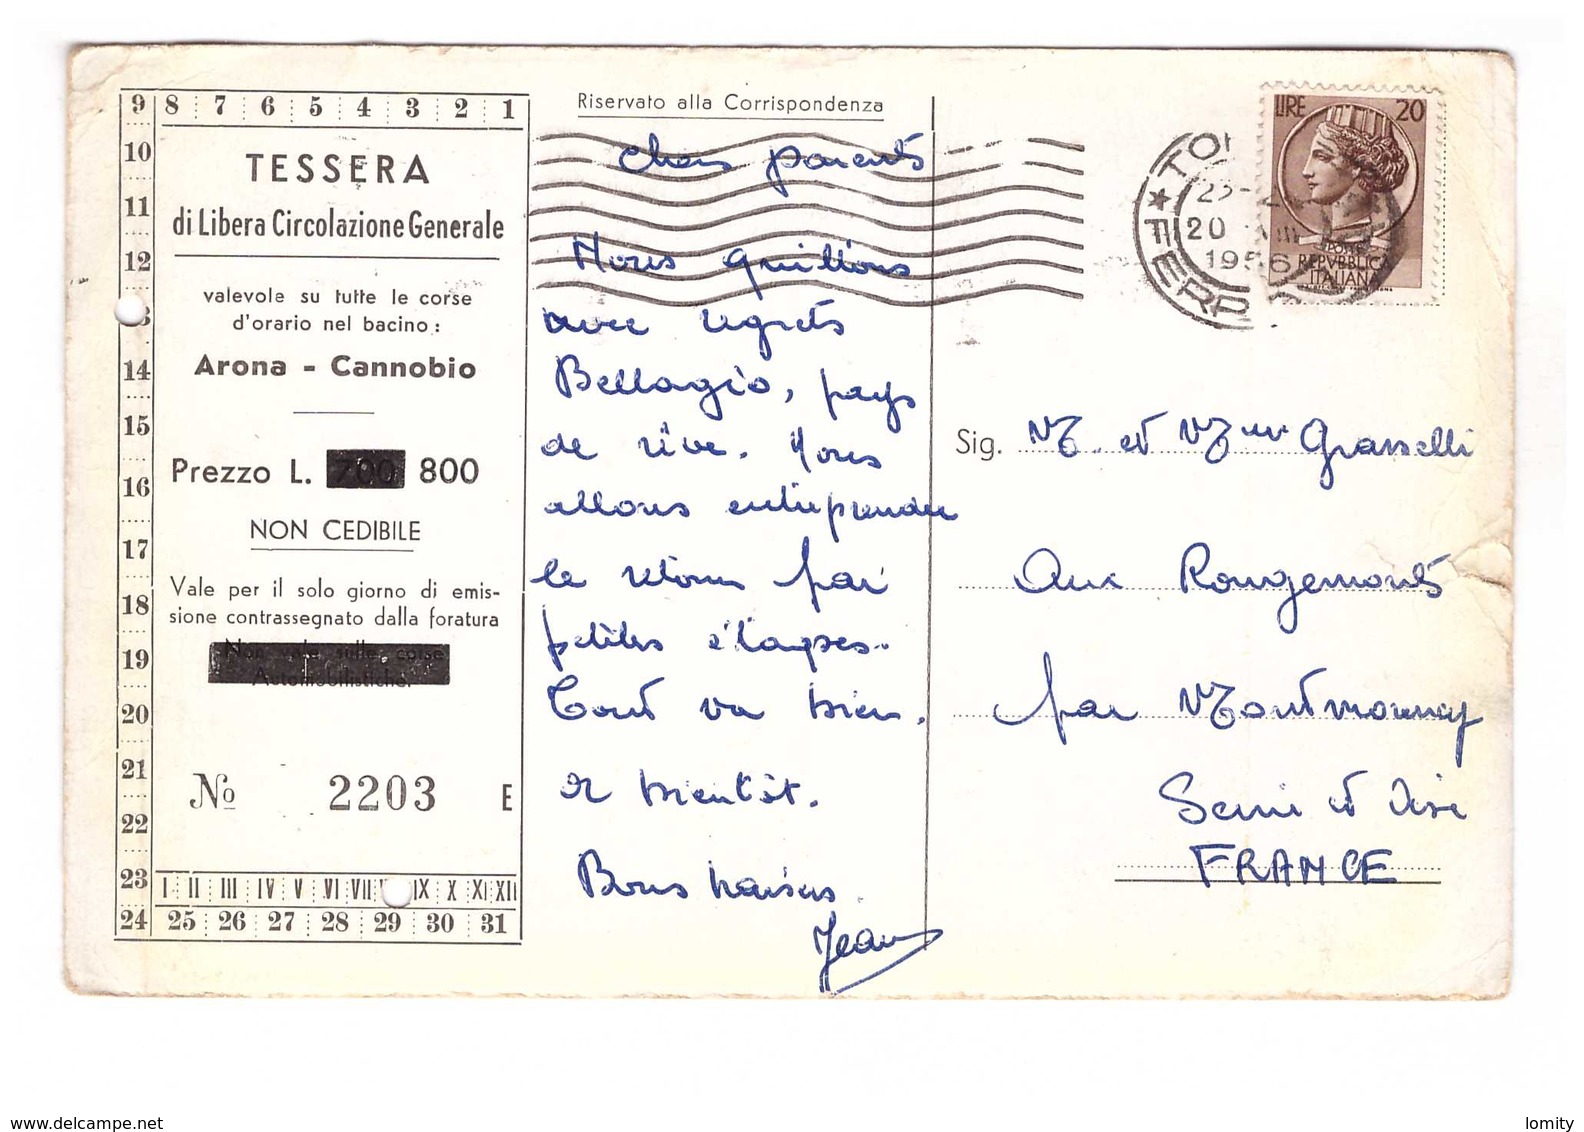 9 8 7 6 5 4 3 2 1
10
11
12
13
14
15
16
17
18
19
20
21
22
23
24
TESSERA
di Libera Circolazione Generale
valevole su tutte le corse
d'orario nel bacino:
Arona - Cannobio
Prezzo L. 700 800
NON CEDIBILE
Vale per il solo giorno di emis-
sione contrassegnato dalla foratura
Non vale sulle corse
Automobilistiche.
No 2203 E
I II III IV V VI VII IX X XI XII
25 26 27 28 29 30 31
Riservato alla Corrispondenza
Chers parents
Nous quittons
avec regrets
Bellagio, pays
de rêve. Nous
allons entreprendre
le retour par
petites étapes.
Tout va bien.
A bientôt.
Bons baisers.
Jean
LIRE 20
REPVBBLICA
ITALIANA
20
1956
FERR
Sig. M. et Mme Grasselli
Aux Rougemonts
par Montmorency
Seine et Oise
FRANCE
www.delcampe.net
lomity